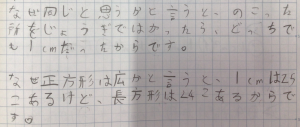 なぜ同じと思うかと言うと、のこった
所をじょうぎではかったら、どっちで
も1cmだったからです。
なぜ正方形は広かと言うと、1cmは25
こあるけど、長方形は24こあるからで
す。